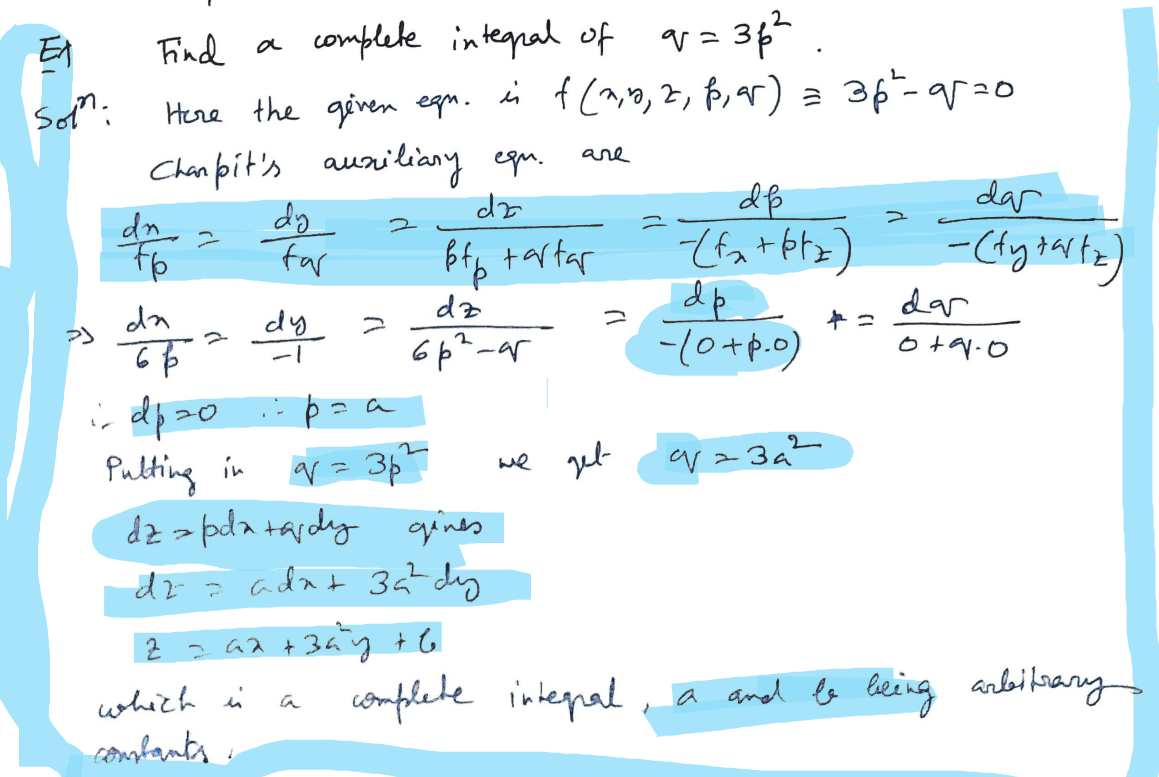 Ex Find a complete integral of q = 3p² .
Solⁿ: Here the given eqn. is f(x,y,z,p,q) ≡ 3p² - q = 0
Charpit's auxiliary eqn. are
dx/fp = dy/fq = dz/(pfp + qfq) = dp/-(fx + pfz) = dq/-(fy + qfz)
⇒ dx/6p = dy/-1 = dz/(6p² - q) = dp/-(0 + p.0) = dq/(0 + q.0)
∴ dp = 0 ∴ p = a
Putting in q = 3p² we get q = 3a²
dz = pdx + qdy gives
dz = adx + 3a² dy
z = ax + 3a²y + b
which is a complete integral, a and b being arbitrary
constants.